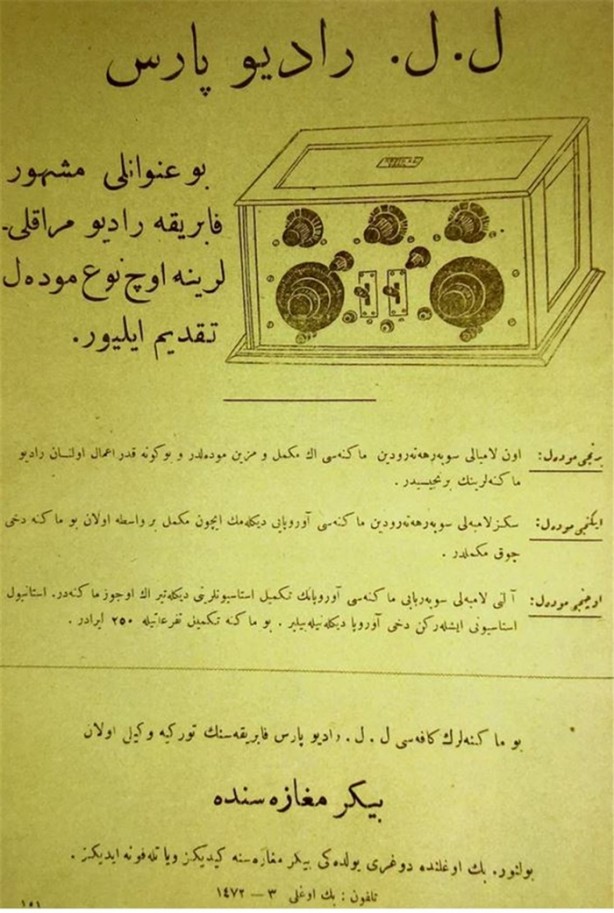 ل. ل. رادیو پارس
بو عنوانلی مشهور
فابریقه رادیو مراقلی-
لرینه اوچ نوع موده‌ل
تقدیم ایلیور.
برنجی موده‌ل: اون لامبالی سوپه‌رهه‌ته‌رودین ماكنه‌سی اك مكمل و مزین موده‌لدر و بوكونه قدر اعمال اولنـان رادیو
ماكنه‌لرینك برنجیسیدر.
ایكنجی موده‌ل: سكز لامبه‌لی سوپه‌رهه‌ته‌رودین ماكنه‌سی آوروپایی دیكله‌مك ایچون مكمل بر واسطه اولان بو ماكنه دخی
چوق مكملدر.
اوچنجی موده‌ل: آلتی لامبه‌لی سوپه‌ر ماكنه‌سی آوروپانك تكمیل استاسیونلرینی دیكله‌تیر اك اوجوز ماكنه‌در. استانبول
استاسیونی ایشلركن دخی آوروپا دیكله‌نیله‌بیلیر. بو ماكنه تكمیل تفرعاتیله ۲۵۰ لیرادر.
بو ماكنه‌لرك كافه‌سی ل. ل. رادیو پارس فابریقه‌سنك توركیه وكیلی اولان
بیكر مغازه‌سنده
بولنور. بك اوغلنده دوغری یولده‌كی بیكر مغازه‌سنه كیدیكز ویا تله‌فونه ایدیكز.
تلفون: بك اوغلی ۳ — ۱٤۷۲
۱۵۱